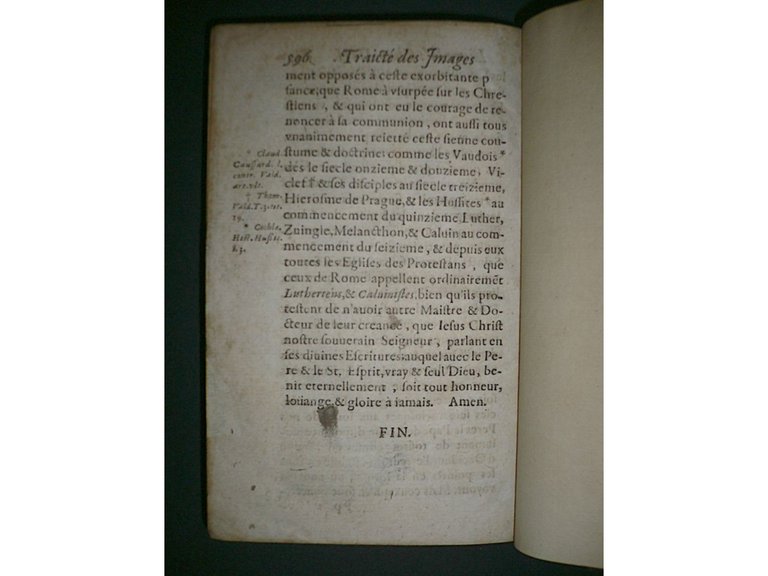 596 Traicté des Images
ment opposés à ceste exorbitante p
sance, que Rome à vsurpée sur les Chre-
stiens, & qui ont eu le courage de re-
noncer à sa communion, ont aussi tous
vnanimement reietté ceste sienne cou-
stume & doctrine: comme les Vaudois *
dés le siecle onzieme & douzieme, Vi-
clef † & ses disciples au siecle treizieme,
Hierosme de Prague, & les Hussites * au
commencement du quinzieme Luther,
Zuingle, Melancthon, & Caluin au com-
mencement du seizieme, & depuis eux
toutes les Eglises des Protestans, que
ceux de Rome appellent ordinairemēt
Lutheriens, & Caluinistes, bien qu'ils pro-
testent de n'auoir autre Maistre & Do-
cteur de leur creance, que Iesus Christ
nostre souuerain Seigneur, parlant en
ses diuines Escritures: auquel auec le Pe-
re & le St. Esprit, vray & seul Dieu, be-
nit eternellement, soit tout honneur,
loüange, & gloire à iamais. Amen.
FIN.
* Claud.
Caussard. l.
contr. Vald.
† Thom.
Vald. T. 3. tit.
19.
* Cochla.
Hist. Hussit.
l. 3.